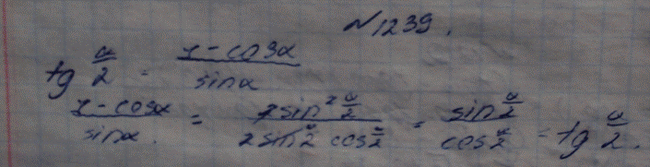 №1239.
tg α/2 = (1-cosα)/(sinα)
(1-cosα)/(sinα) = (2sin² α/2)/(2sin α/2 cos α/2) = (sin α/2)/(cos α/2) = tg α/2.